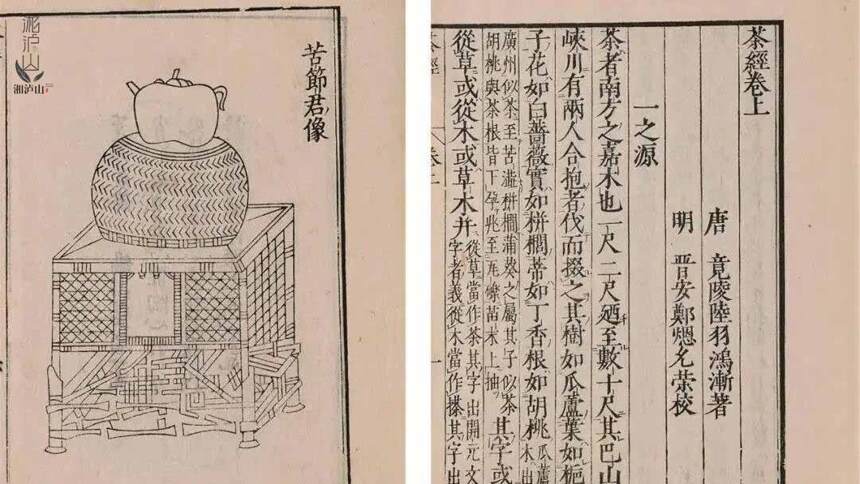 湘泸山
湘泸山
苦節君像
茶經卷上
唐 竟陵陸羽鴻漸著
明 晉安鄭熜允榮校
一之源
茶者南方之嘉木也一尺二尺廼至數十尺其巴山
峽川有兩人合抱者伐而掇之其樹如瓜蘆葉如梔
子花如白薔薇實如栟櫚蒂如丁香根如胡桃瓜蘆木出
廣州似茶至苦澁栟櫚蒲葵之屬其子似茶胡桃與茶根皆下孕兆至瓦礫苗木上抽其字或
從草或從木或草木并從草當作茶其字出開元文字者義從木當作搽其字出